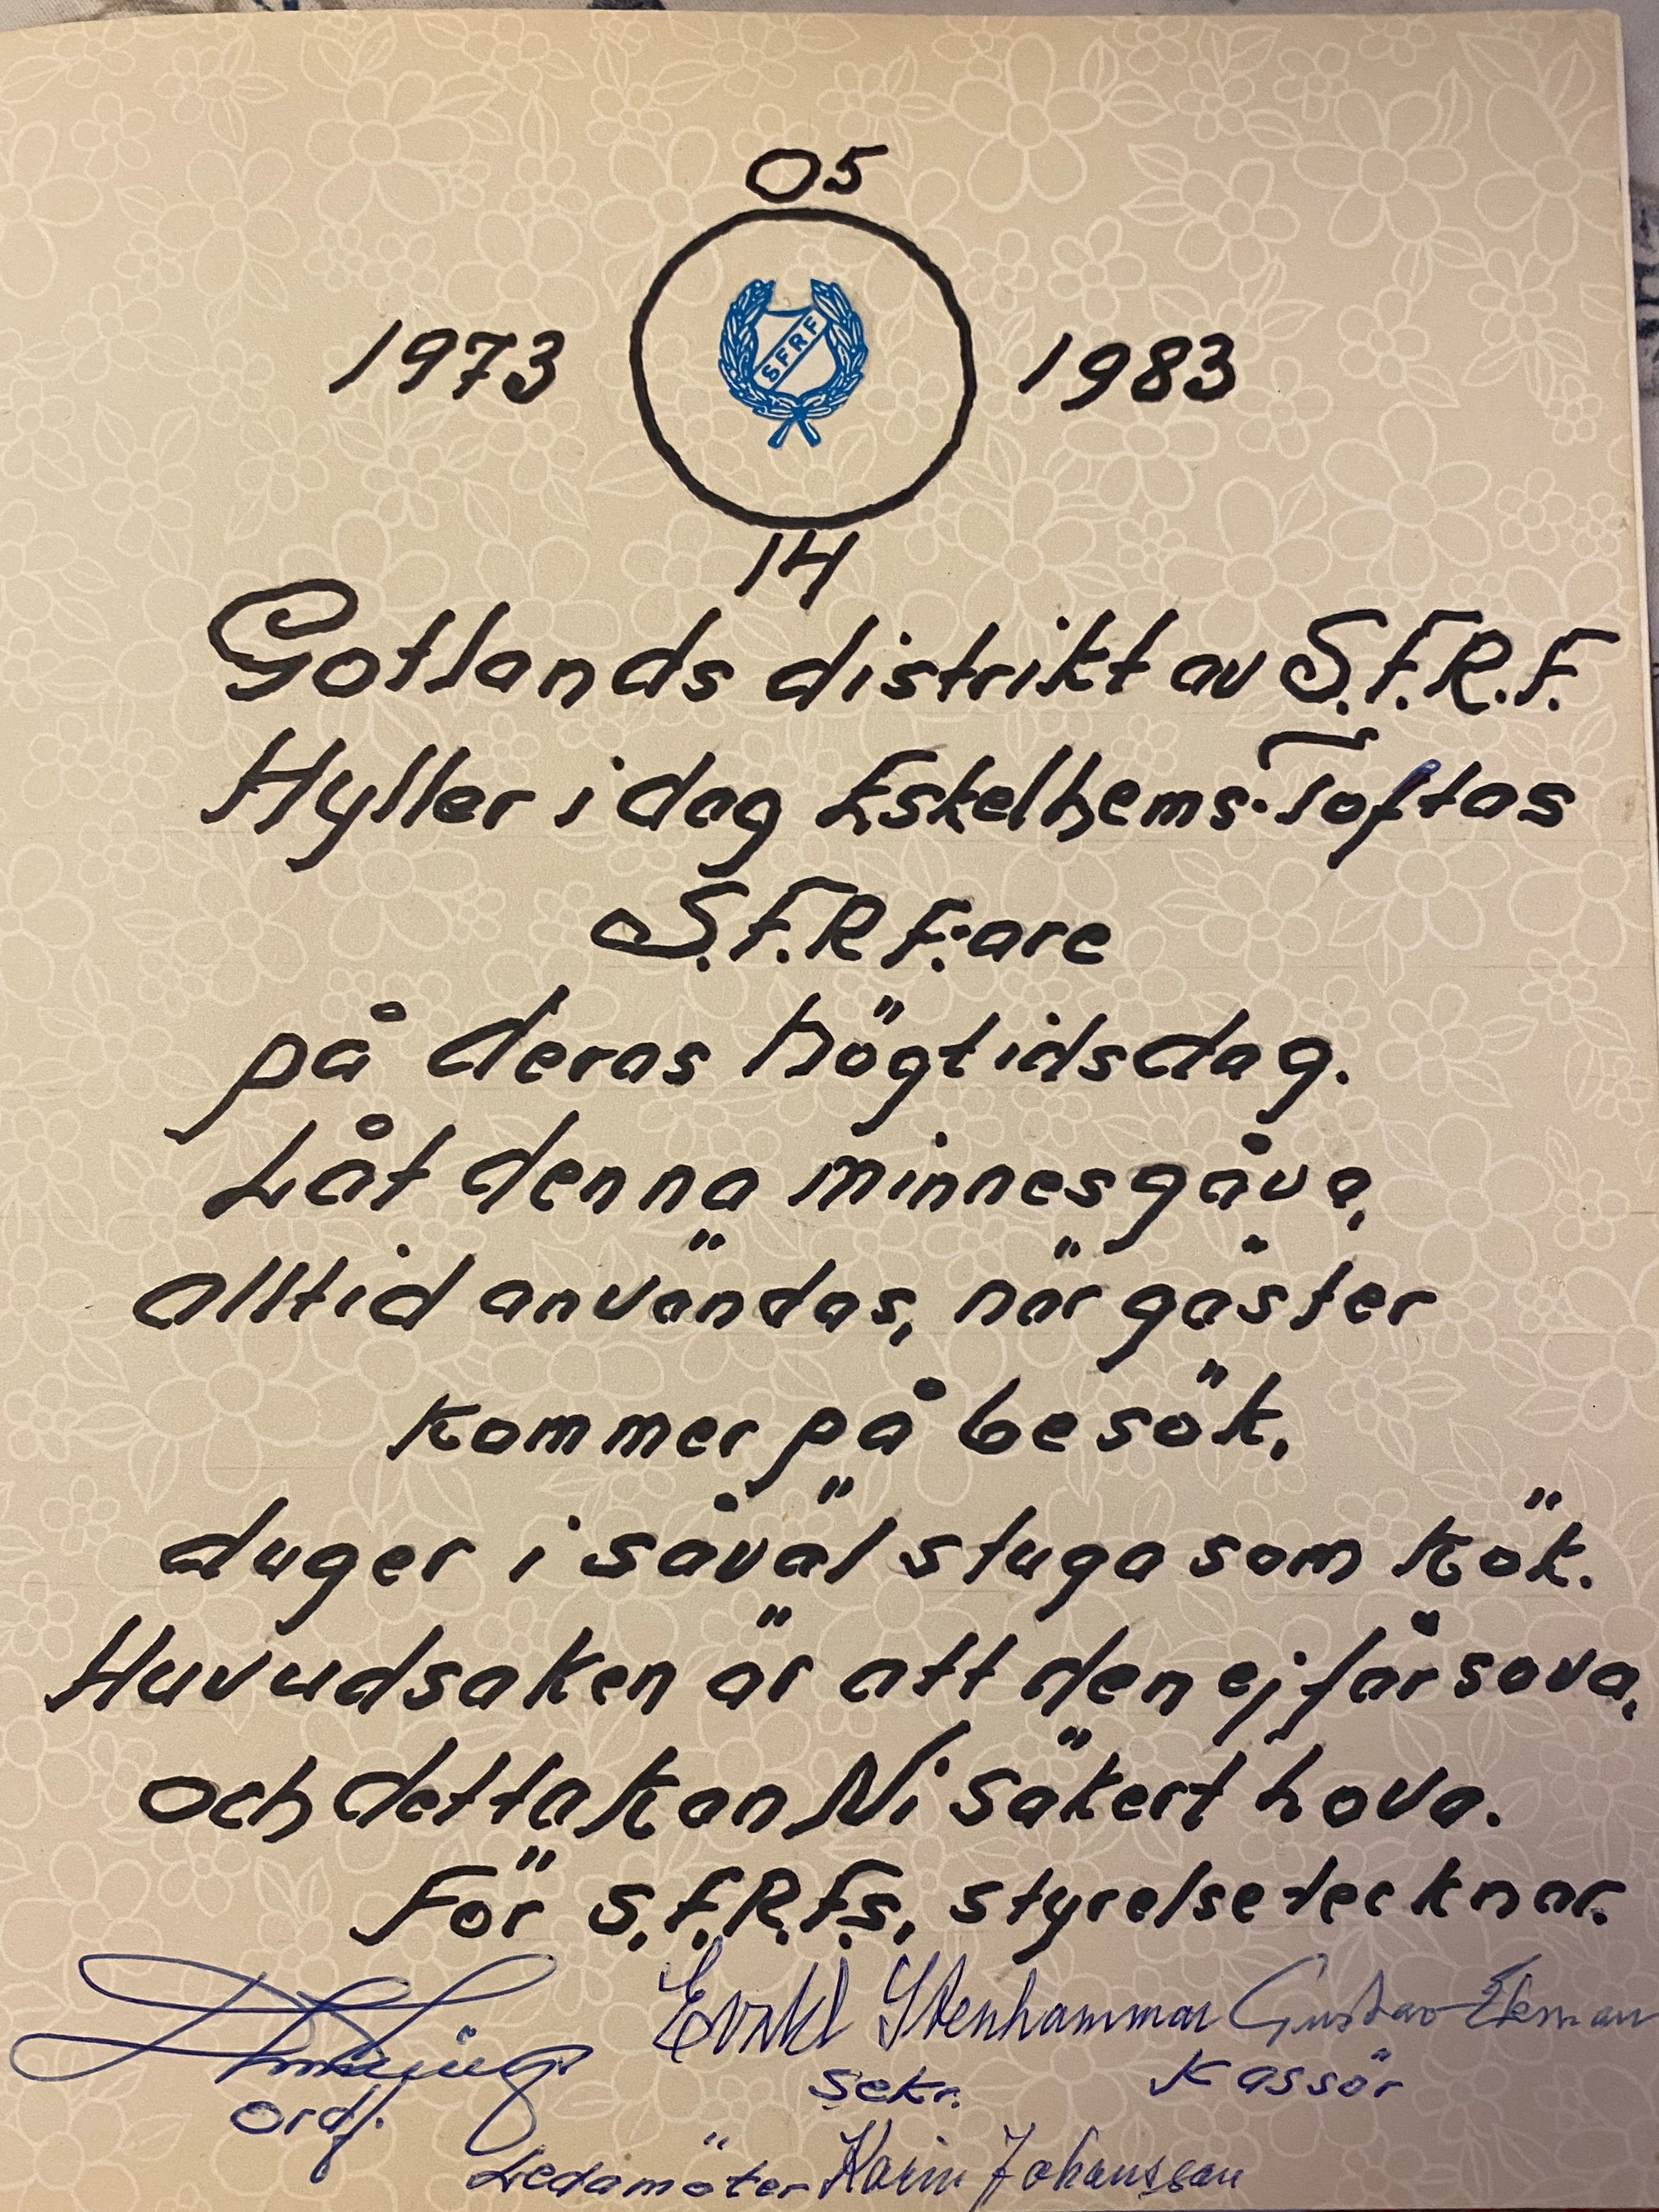 05
1973 SFRF 1983
14
Gotlands distrikt av S.F.R.F.
Hyller i dag Eskelhems-Toftas
S.F.R F:are
på deras högtidsdag.
Låt denna minnesgåva,
alltid användas, när gäster
kommer på besök,
duger i såväl stuga som kök.
Huvudsaken är att den ej får sova,
och detta kan Ni säkert lova.
För S.F.R.F.s. styrelse tecknar.
Stenhammar Gustav Ekman
ordf. sekr. Kassör
Ledamöter Karin Johansson